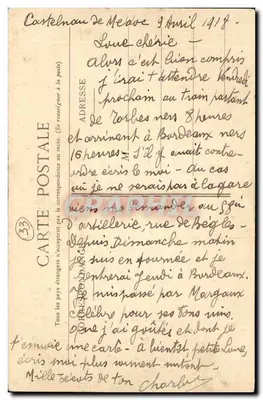 Castelnau de Médoc 9 Avril 1918 -
Loue chérie -
Alors c'est bien compris
j'irai t'attendre Vendredi
prochain au train partant
de Tarbes vers 8 heures
et arrivant à Bordeaux vers
16 heures = S'il y avait contre-
ordre écris le moi - Au cas
où je ne serais pas à la gare
viens me demander au
d'artillerie, rue de Bègles -
Depuis Dimanche matin
je suis en tournée et je
rentrerai Jeudi à Bordeaux.
Margaux
célèbre pour ses bons vins.
que j'ai goûtés et dont je
t'envoie une carte - à bientôt petite Loue,
écris moi plus souvent
Mille bécots de ton Charlot
CARTE POSTALE
Tous les pays étrangers n'acceptent pas la correspondance au recto. (Se renseigner à la poste)
ADRESSE
33